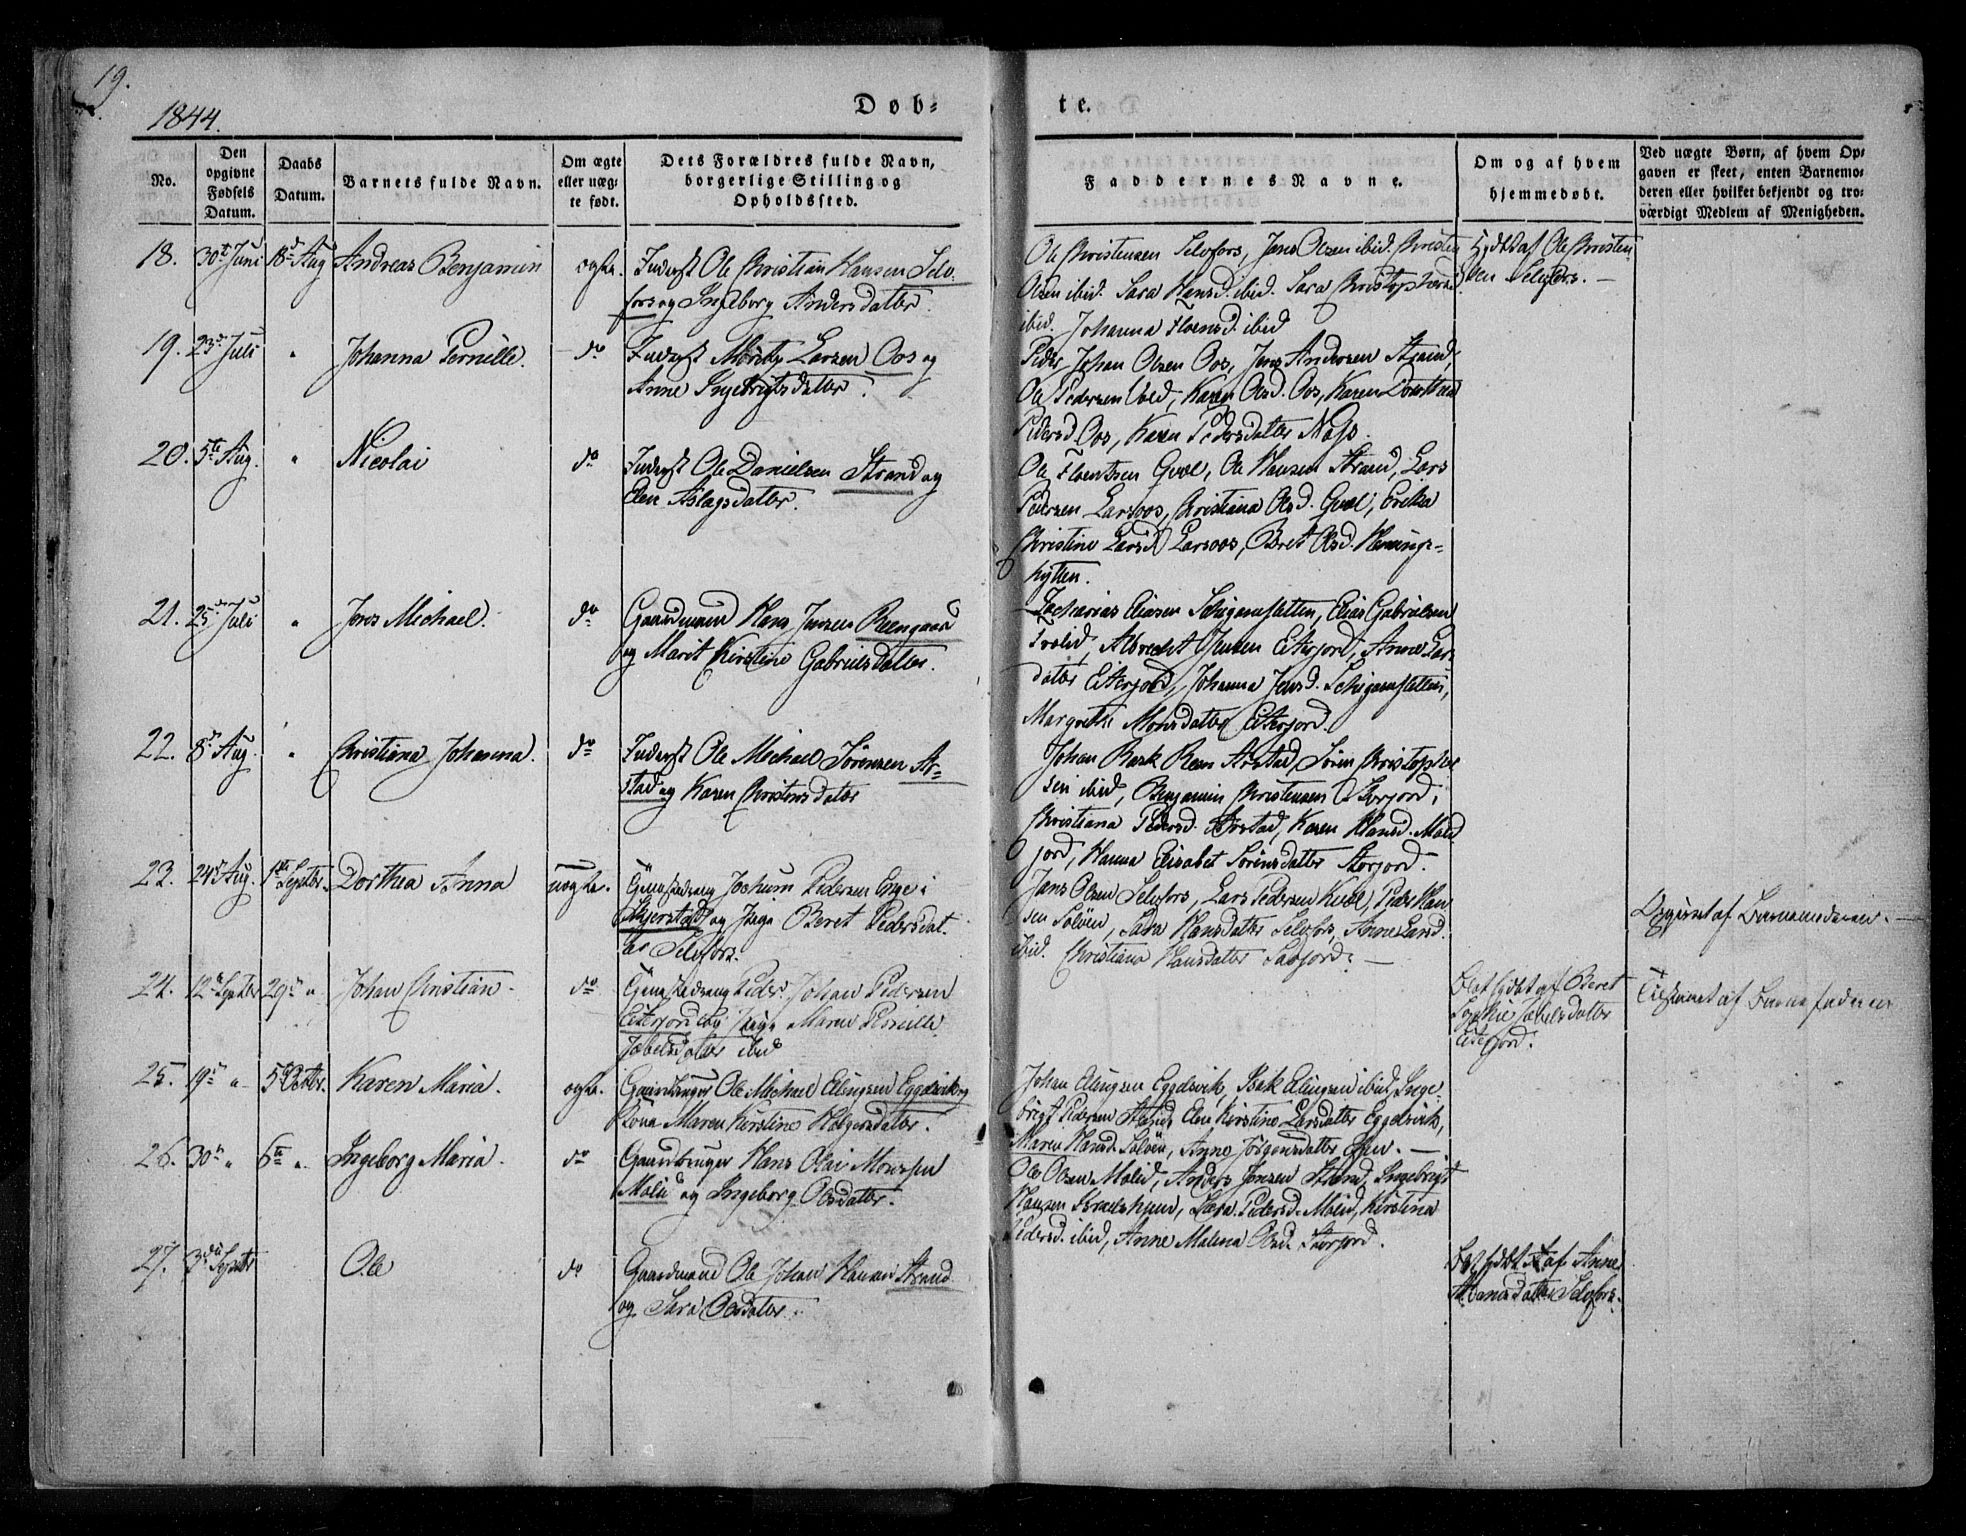 19.
1844.
Døb-
te.
No.
Den opgivne Fødsels Datum.
Daabs Datum.
Barnets fulde Navn.
Om ægte eller uægte født.
Dets Forældres fulde Navn, borgerlige Stilling og Opholdssted.
Faddernes Navne.
Om og af hvem hjemmedøbt.
Ved uægte Børn, af hvem Opgaven er skeet, enten Barnemoderen eller hvilket bekjendt og troværdigt Medlem af Menigheden.
18. 30te Juni 18de Aug Andreas Benjamin ægte. Inderst Ole Christian Hansen Selv-
fors og Ingeborg Andersdatter.
Ole Christensen Selvfors, Jens Olsen ibid. Christen
Olsen ibid. Sara Hansd. ibid. Sara
ibid. Johanna ibid
af Ole Christen
sen Selvfors.
19. 23de Juli " Johanna Pernille. do Inderst Larsen Oos og
Anne Ingebrigtsdatter.
Peder Johan Olsen Oos, Jens Andersen Strand,
Ole Pedersen Karen Olsd. Oos, Karen Dorthea
Pedersd. Oos, Karen Pedersdatter
20. 5te Aug. " Nicolai do Inderst Ole Danielsen Strand og
Elen Aslagsdatter.
Ole Ole Hansen Strand, Lars
Pedersen Larsoos, Christiana Olsd.
Christine Larsd Larsoos, Beret Olsd.
21. 25de Juli " Jens Michael. do Gaardmand Hans Jensen Reengaard
og Marit Kirstine Gabrielsdatter.
Zacharias Eliasen Elias Gabrielsen
Albrecht Jensen Eiterjord, Anne Lars
datter Eiterjord, Johanna Jensd.
Margrethe Monsdatter Eiterjord.
22. 8de Aug. " Christiana Johanna. do Inderst Ole Michael Sörensen Ar-
stad og Karen Christensdatter
Johan Arstad, Sören Christopher
sen ibid, Benjamin Christensen Storjord,
Christiana Pedersd. Arstad, Karen Hansd.
jord, Hanna Elisabet Sörensdatter Storjord.
23. 24de Aug. 1ste Septbr. Dorthea Anna uægte. Jochum Pedersen
og Pige Beret Pedersdat
ter Selvfors.
Jens Olsen Selvfors, Lars Pedersen Peder Han
sen Solöen, Sara Hansdatter Selvfors, Anne
ibid. Christiana Hansdatter
Opgivet af Barnemoderen.
24. 12te Septbr 29de " Johan Christian do Peder Johan Pedersen
Eiterjord og Pige Maren Pernille
ibid
af Beret
Eiterjord.
af Barnefaderen
25. 19de " 5te Octbr. Karen Maria. ægte. Gaardbruger Ole Michael Ellingsen Eggesvik og
Kone Maren Kirstine Holgersdatter.
Johan Ellingsen Eggesvik, Isak Ellingsen ibid, Inge-
brigt Pedersen Strand, Elen Kirstine Larsdatter Eggesvik,
Maren Hansd. Solöen, Anne Jörgensdatter
26. 30te " 6te " Ingeborg Maria. do Gaardbruger Hans Olai Monssen
Molid og Ingeborg Olsdatter.
Ole Olsen Molid, Anders Jensen Strand, Ingebrigt
Hansen Sara Pedersd. Molid, Kirstina
Pedersd. ibid, Anne Malena Olsd. Storjord.
27. 3die Septbr Ole do Gaardmand Ole Johan Hansen Strand
og Sara Olsdatter.
af Anne
Hansdatter Selvfors.